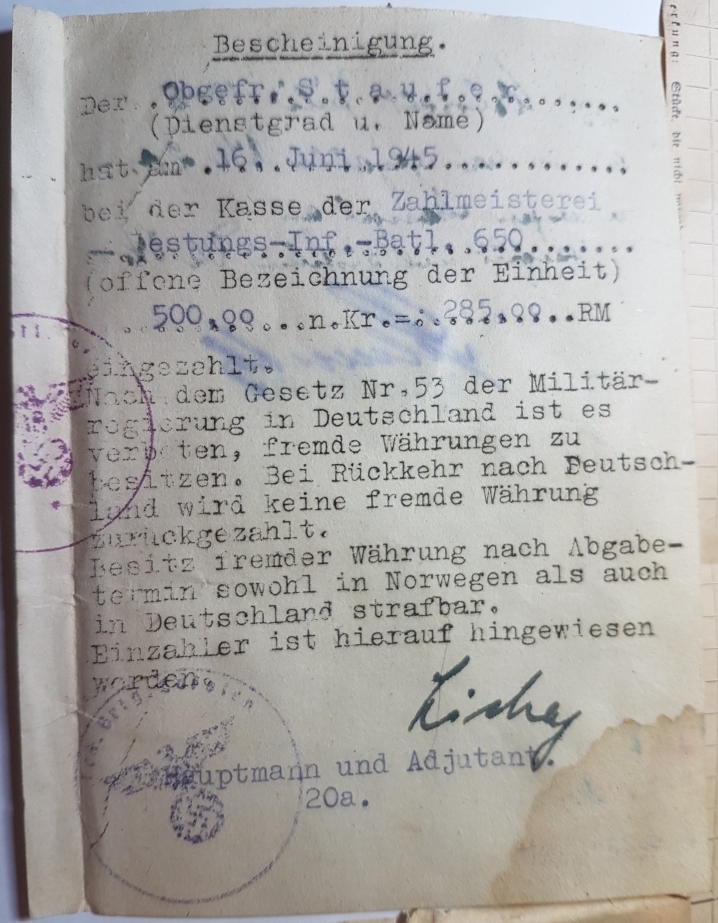 Bescheinigung.
Der Obgefr. Staufer
(Dienstgrad u. Name)
hat am 16. Juni 1945
bei der Kasse der Zahlmeisterei
Festungs-Inf.-Batl. 650
(offene Bezeichnung der Einheit)
500,00 n.Kr.=: 285,00 RM
eingezahlt.
Nach dem Gesetz Nr.53 der Militär-
regierung in Deutschland ist es
verboten, fremde Währungen zu
besitzen. Bei Rückkehr nach Deutsch-
land wird keine fremde Währung
zurückgezahlt.
Besitz fremder Währung nach Abgabe-
termin sowohl in Norwegen als auch
in Deutschland strafbar.
Einzahler ist hierauf hingewiesen
worden.
Hauptmann und Adjutant.
20a.